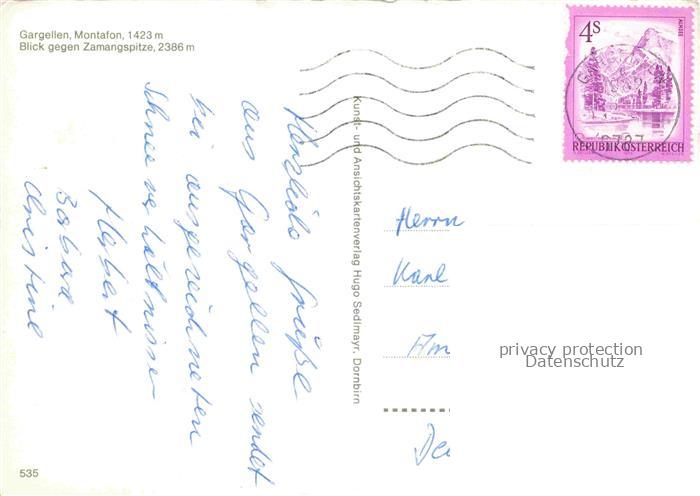 Gargellen, Montafon, 1423 m
Blick gegen Zamangspitze, 2386 m
Herzliche Grüße
aus Gargellen sendet
bei ausgezeichneten
Schneeverhältnissen
Herbert
Barbara
Christine
535
Kunst- und Ansichtskartenverlag Hugo Sedlmayr, Dornbirn
4S
ALMSEE
REPUBLIK ÖSTERREICH
Herrn
Karl
Am
privacy protection
Datenschutz